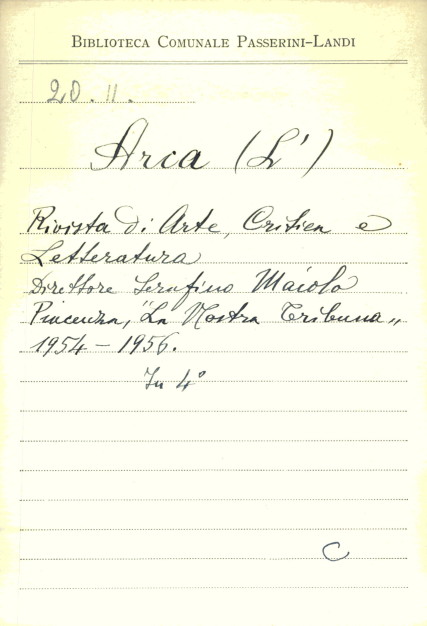 BIBLIOTECA COMUNALE PASSERINI-LANDI
20.II.
Arca (L')
Rivista di Arte, Critica e
Letteratura
Direttore Serafino Maiolo
Piacenza, "La Nostra Tribuna"
1954-1956.
In 4°
C